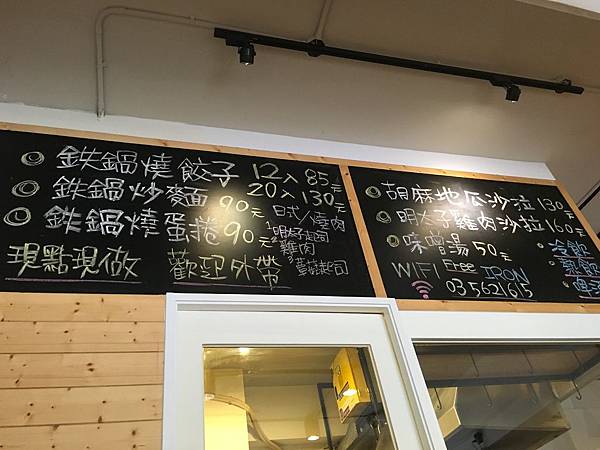 鉄鍋燒餃子 12入 85元
20入 130元
鉄鍋炒麵 90元 日式/燒肉
鉄鍋燒蛋捲 90元 明太子起司
雞肉
蕃茄起司
現點現做 歡迎外帶
胡麻地瓜沙拉 130元
明太子雞肉沙拉 160元
味噌湯 50元
冷飲
熱飲
啤酒
WIFI Free IRON
035621615